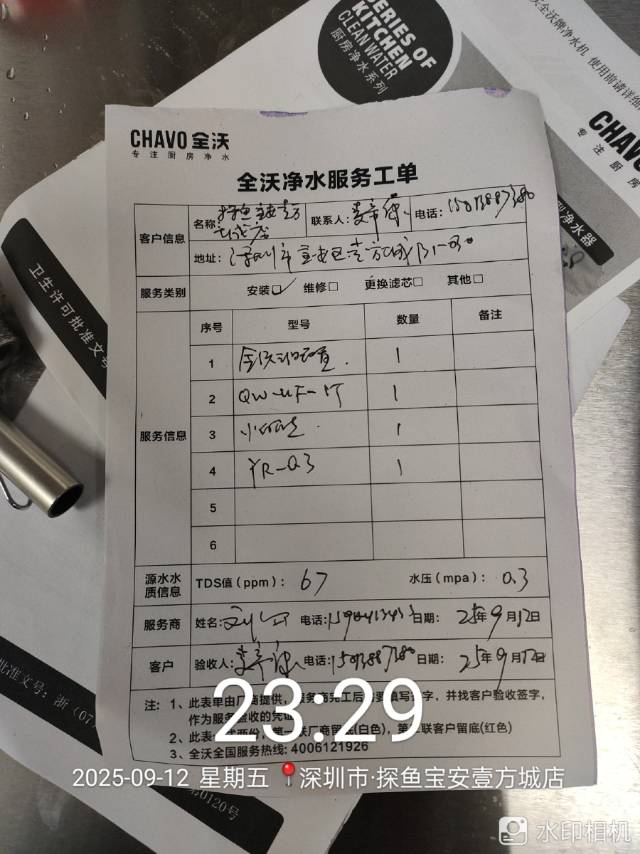 SERIES OF
KITCHEN
CLEAN WATER
厨房净水系列
全沃牌净水机 使用前请详细
CHAVO
专注厨房
净水器
卫生许可批准文号
CHAVO 全沃
专注厨房净水
全沃净水服务工单
客户信息
名称: 探鱼宝安壹方城店
联系人:
电话:
地址: 深圳市宝安区壹方城
服务类别
安装☑ 维修□ 更换滤芯□ 其他□
服务信息
序号 型号 数量 备注
1 1
2 QW-UF-1T 1
3 1
4 YR-0.3 1
5
6
源水水质信息
TDS值(ppm): 67 水压(mpa): 0.3
服务商 姓名: 电话: 日期: 25年9月12日
客户 验收人: 电话: 日期: 25年9月12日
注: 1、此表单由厂商提供,服务商完工后填写签字,并找客户验收签字,
作为服务验收的凭证
2、此表一式两份,第一联厂商留底(白色),第二联客户留底(红色)
3、全沃全国服务热线: 4006121926
23:29
2025-09-12 星期五 深圳市·探鱼宝安壹方城店
批准文号: 浙(07
0120号
水印相机